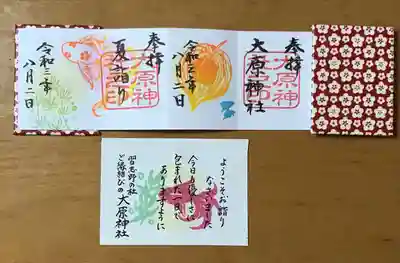 奉拝
大原神社
令和三年
八月二日
奉拝
夏詣り
令和三年
八月二日
ようこそお詣り
なさいました
今日も優しさに
包まれた一日で
ありますように
習志野の杜
ど縁結びの大原神社